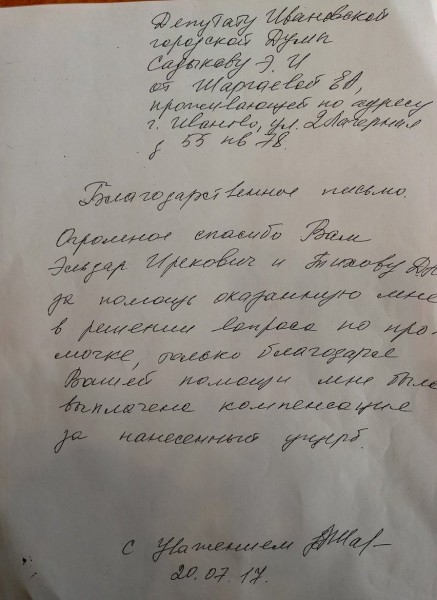 Депутату Ивановской
городской Думы
Садыкову Э. И
от Шаргаевой ЕА,
проживающей по адресу
г. Иваново, ул. 2Лагерная
д 55 кв 78.
Благодарственное письмо.
Огромное спасибо Вам
Эльдар Ирекович и Тихову
за помощь оказанную мне
в решении вопроса по про-
мочке, только благодаря
Вашей помощи мне был
выплачена компенсация
за нанесенный ущерб.
С Уважением
20.07.17.